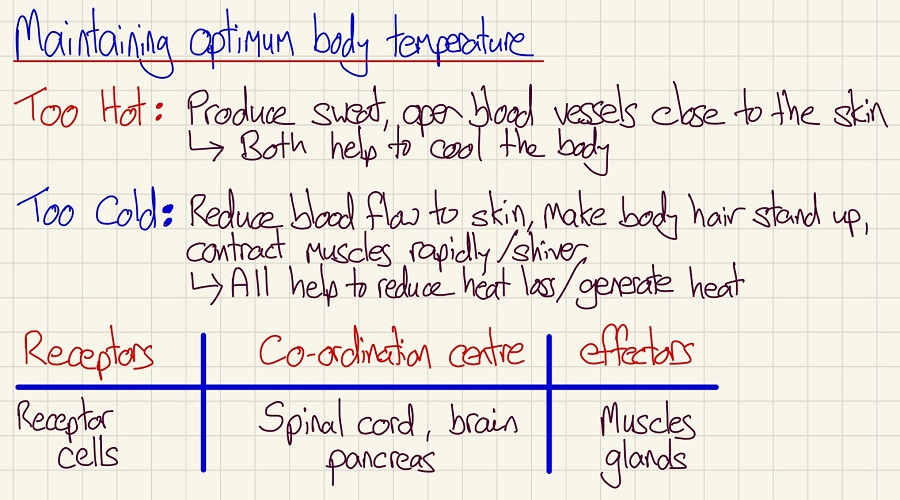 Maintaining optimum body temperature
Too Hot: Produce sweat, open blood vessels close to the skin
↳ Both help to cool the body
Too Cold: Reduce blood flow to skin, Make body hair stand up,
contract muscles rapidly/shiver
↳ All help to reduce heat loss/generate heat
Receptors Co-ordination centre effectors
Receptor Spinal cord, brain Muscles
cells pancreas glands